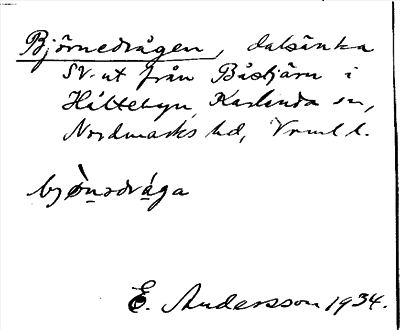 Björnedrågen, dalsänka
SV-ut från Båstjärn i
Håltebyn, Karlanda sn,
Nordmarks hd, Vrml l.
bjö̀nədrága
E. Andersson 1934.